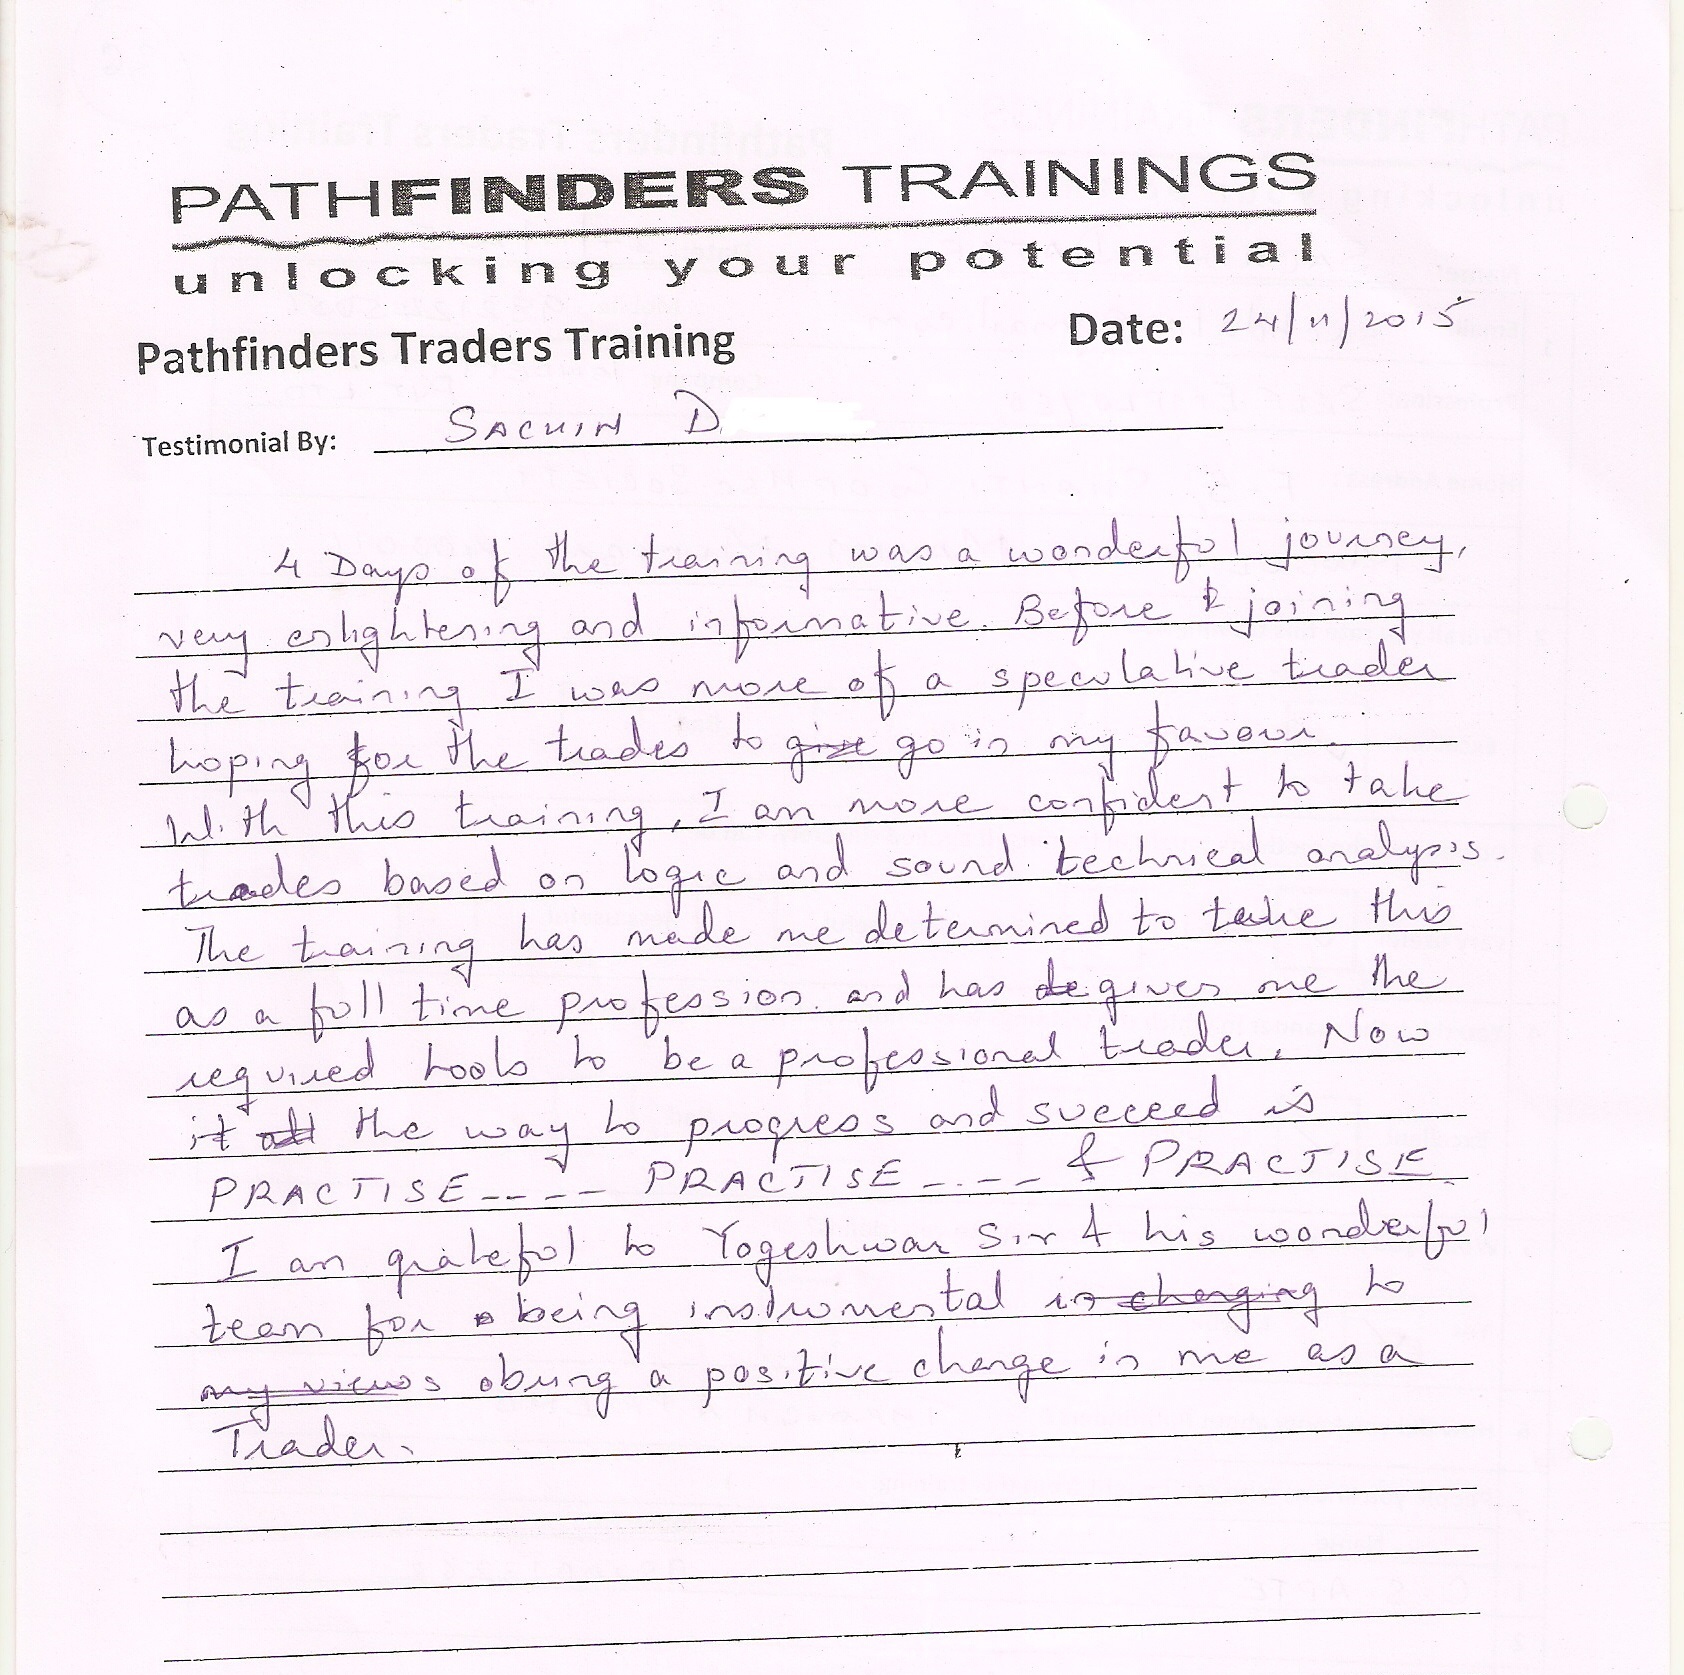 PATHFINDERS TRAININGS
unlocking your potential
Pathfinders Traders Training
Date: 24/11/2015
Testimonial By: SACHIN D
4 Days of the training was a wonderful journey,
very enlightening and informative. Before joining
the training I was more of a speculative trader
hoping for the trades to give go in my favour.
With this training, I am more confident to take
trades based on logic and sound technical analysis.
The training has made me determined to take this
as a full time profession and has de given me the
required tools to be a professional trader. Now
it all the way to progress and succeed is
PRACTISE---- PRACTISE ---- & PRACTISE
I am grateful to Yogeshwar Sir & his wonderful
team for being instrumental in changing to
my views bring a positive change in me as a
Trader.